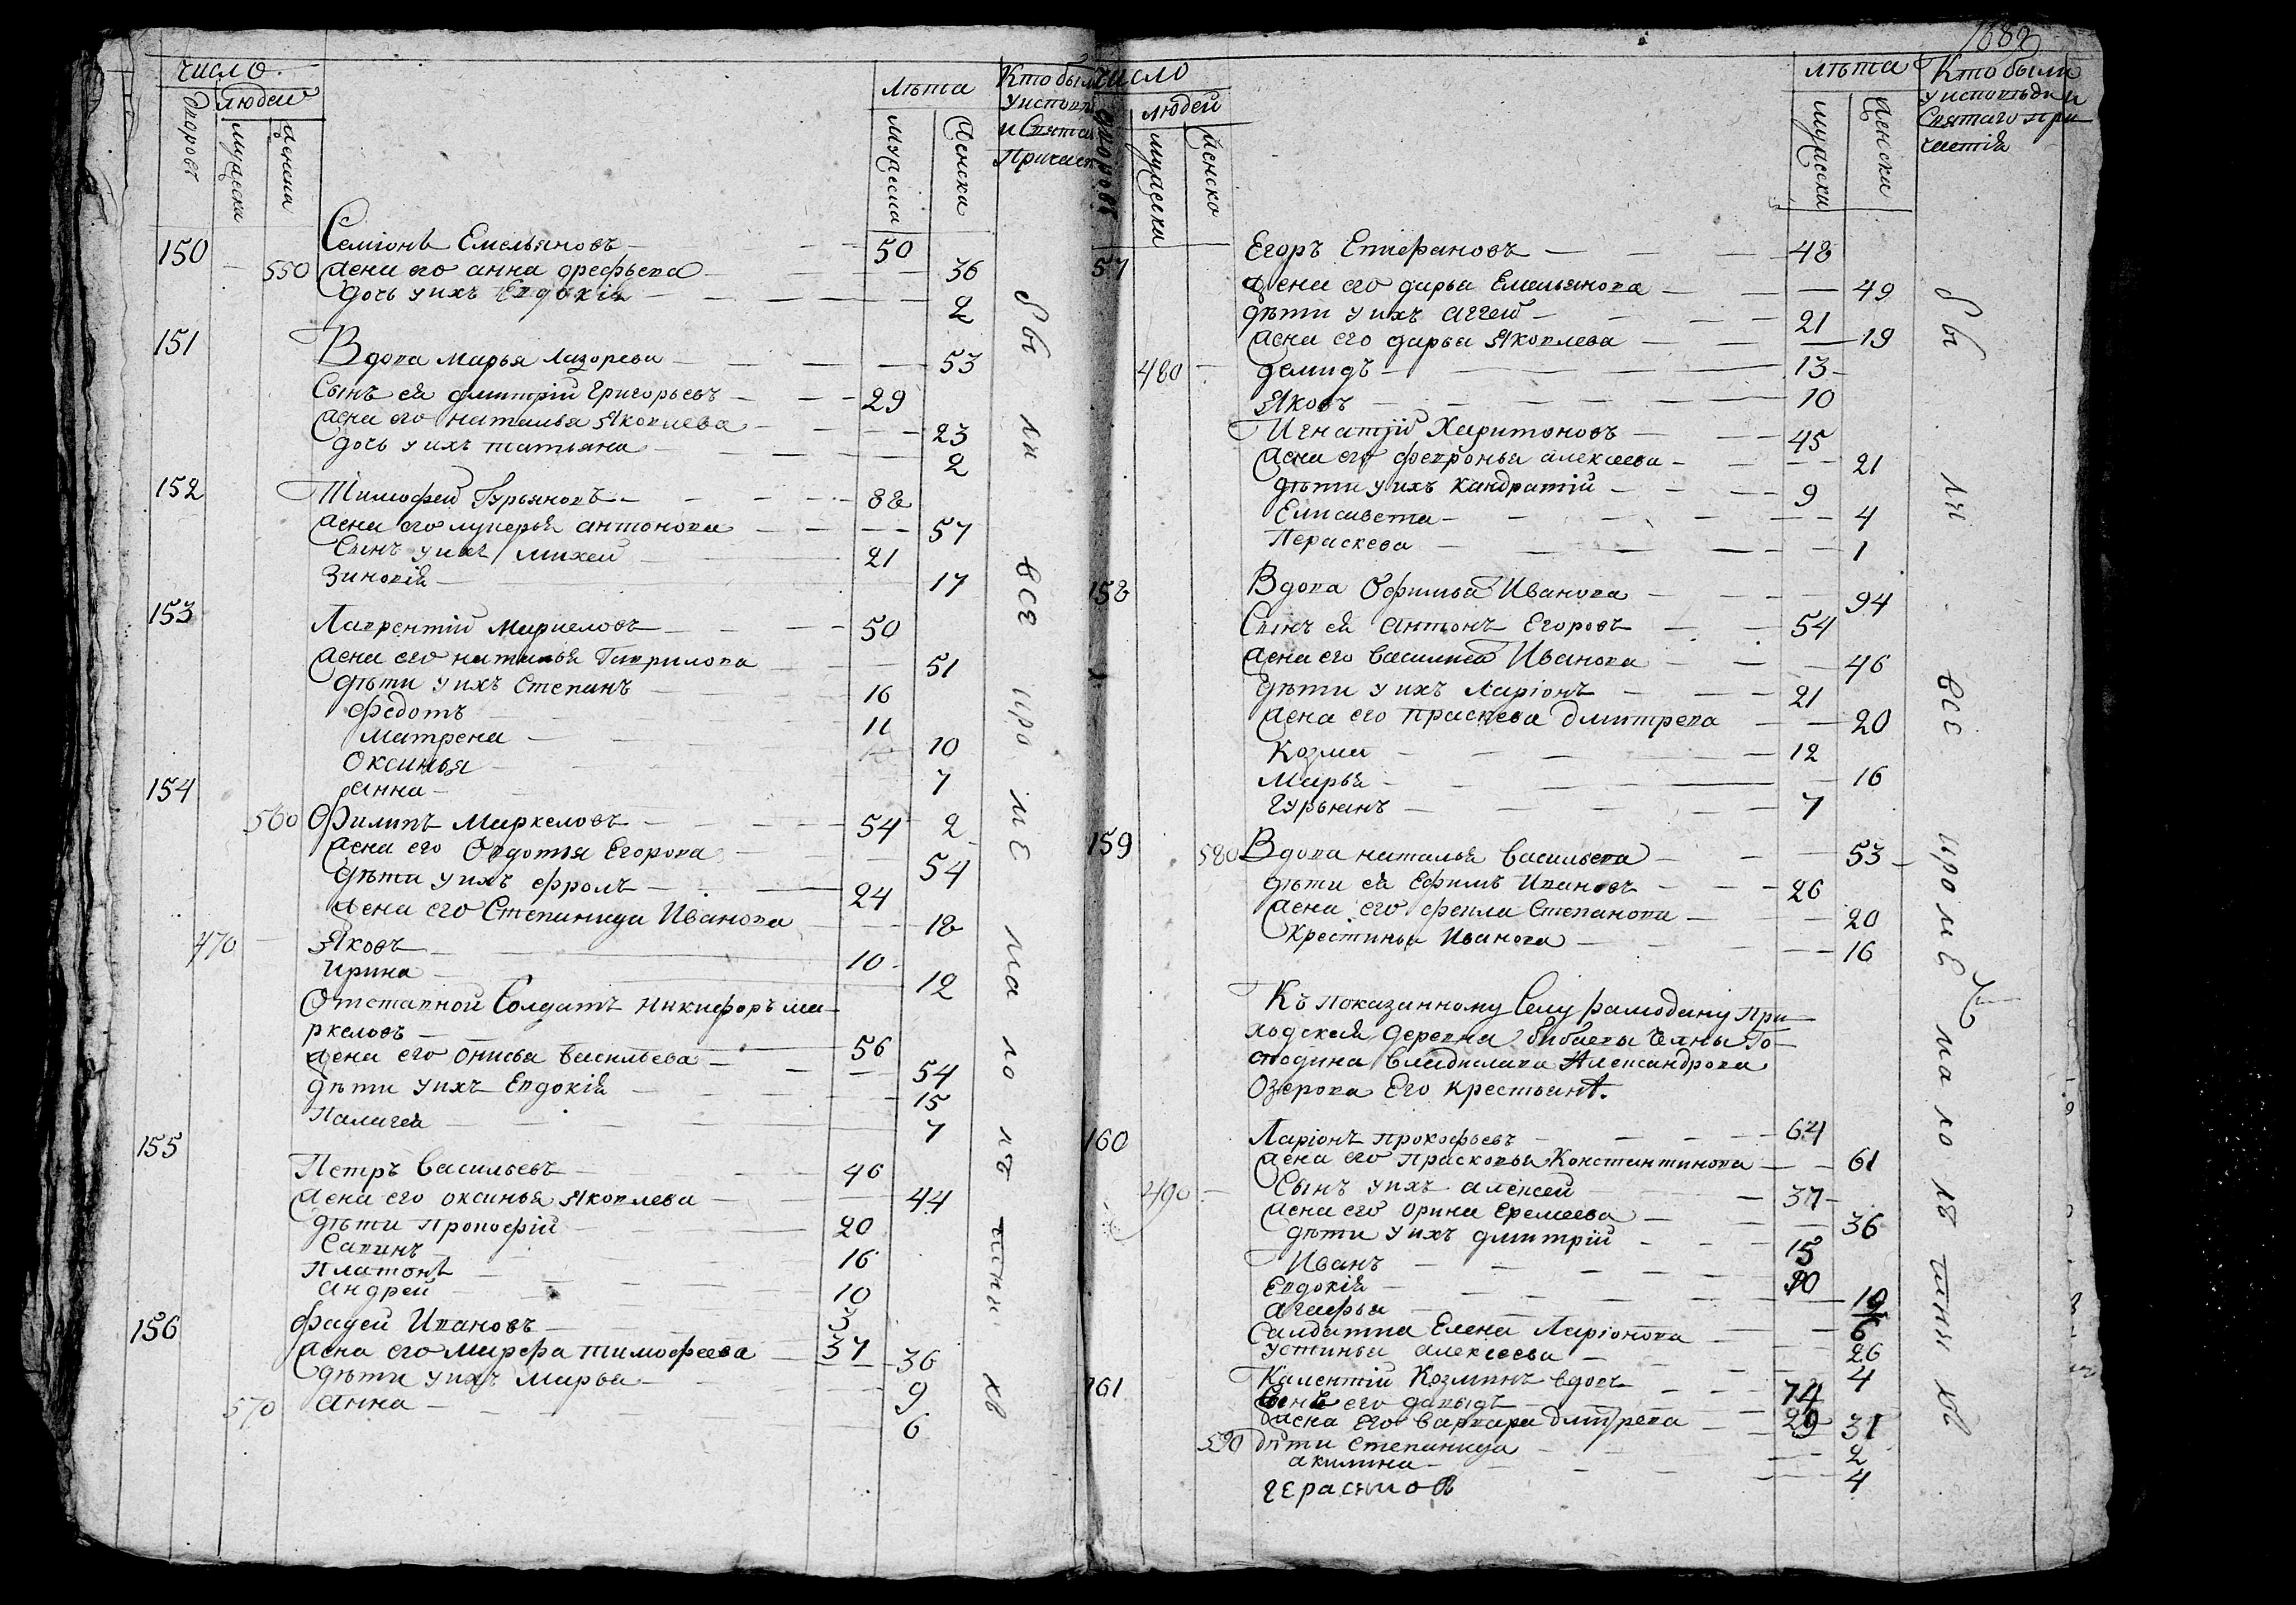 число
людей
дворовъ
мужска
женска
лѣта
мужска
женска
Кто были
у исповѣ
и святаго
Причаст
150
550
Семіонъ Емельяновъ 50
жена его анна орефьева 36
дочь у ихъ Евдокія 2
151
Вдова Марья Лазорева 53
Сынъ ея дмитрій Григорьевъ 29
жена его наталья Яковлева 23
дочь у ихъ татьяна 2
152
Тимофей Гурьяновъ 82
жена его лукерья антонова 57
Сынъ у ихъ михей 21
Зиновія 17
153
Лаврентій Маркеловъ 50
жена его наталья Гаврилова 51
дѣти у ихъ Степанъ 16
Федотъ 11
Матрена 10
Оксинья 7
154
анна 2
560
Филипъ Маркеловъ 54
жена его Овдотья Егорова 54
дѣти у ихъ Фролъ 24
жена его Степанида Иванова 18
470
Яковъ 10
Ирина 12
Отставной Солдатъ никифоръ ма-
ркеловъ 56
жена его Онисья васильева 54
дѣти у ихъ Евдокія 15
Палагея 7
155
Петръ Васильевъ 46
жена его оксинья Яковлева 44
дѣти Прокофій 20
Савинъ 16
Платонъ 10
андрей 3
156
Фадей Ивановъ 37
жена его Марфа тимофеева 36
дѣти у ихъ Марья 9
570
анна 6
были все кроме малолѣтних
1689
число
дворовъ
людей
мужска
женско
лѣта
мужска
женски
Кто были
у исповѣди и
Святаго при
частія
57
Егоръ Епифановъ 48
жена его дарья Емельянова 49
дѣти у ихъ аггей 21
жена его дарья Яковлева 19
480
демидъ 13
Яковъ 10
Игнатій Харитоновъ 45
жена его февронья алексеева 21
дѣти у ихъ Кандратій 9
Елисавета 4
Пераскева 1
158
Вдова Офимья Иванова 94
Сынъ ея антонъ Егоровъ 54
жена его василиса Иванова 46
дѣти у ихъ Ларіонъ 21
жена его праскева дмитрева 20
Козма 12
Марья 16
Гурьянъ 7
159
580
Вдова наталья васильева 53
дѣти ея Ефимъ Ивановъ 26
жена его фекла Степанова 20
крестинья Иванова 16
Къ показанному селу рамоданy при
ходской деревни Го-
сподина владислава Александрова
Озерова Его крестьянъ.
160
Ларіонъ прокофьевъ 64
жена его прасковья Константинова 61
490
Сынъ у ихъ алексей 37
жена его орина еремеева 36
дѣти у ихъ дмитрій 15
Иванъ
Евдокія
агафья 6
Салдатка Елена Ларіонова 26
устинья алексеева 4
161
Калентій Козминъ вдовъ 74
Сынъ его давыдъ 29
жена его варвара дмитрева 31
590
дѣти степанида 2
акилина 4
герасимов
были все кроме малолѣтних